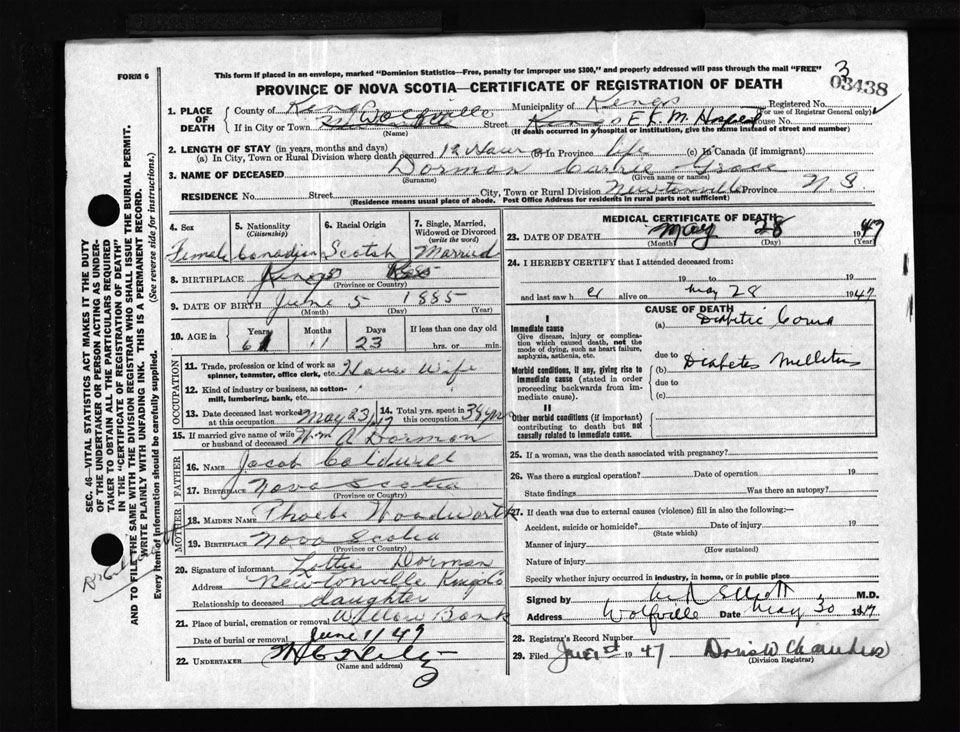 FORM 6
This form if placed in an envelope, marked "Dominion Statistics—Free, penalty for improper use $300," and properly addressed will pass through the mail "FREE"
3
03438
PROVINCE OF NOVA SCOTIA—CERTIFICATE OF REGISTRATION OF DEATH
1. PLACE OF DEATH
County of Kings Municipality of Kings Registered No.
(For use of Registrar General only)
If in City or Town Wolfville Street E.K.M. Hospital House No.
(Name) (If death occurred in a hospital or institution, give the name instead of street and number)
2. LENGTH OF STAY (in years, months and days)
(a) In City, Town or Rural Division where death occurred 12 Hour (b) In Province life (c) In Canada (if immigrant)
3. NAME OF DECEASED Dorman Grace
(Surname) (Given name or names)
RESIDENCE No. Street City, Town or Rural Division Newtonville Province N S
(Residence means usual place of abode. Post Office Address for residents in rural parts not sufficient)
4. Sex
5. Nationality
(Citizenship)
6. Racial Origin
7. Single, Married, Widowed or Divorced
(write the word)
Female Canadian Scotch Married
8. BIRTHPLACE Kings
(Province or Country)
9. DATE OF BIRTH June 5 1885
(Month) (Day) (Year)
10. AGE in
Years Months Days If less than one day old
61 11 23 hrs. or min.
OCCUPATION
11. Trade, profession or kind of work as spinner, teamster, office clerk, etc. House Wife
12. Kind of industry or business, as cotton-mill, lumbering, bank, etc.
13. Date deceased last worked at this occupation May 23/47
14. Total yrs. spent in this occupation 34 yrs
15. If married give name of wife or husband of deceased Wm A Dorman
FATHER
16. NAME Jacob Coldwell
17. BIRTHPLACE Nova Scotia
(Province or Country)
MOTHER
18. MAIDEN NAME Phoebe Woodworth
19. BIRTHPLACE Nova Scotia
(Province or Country)
20. Signature of informant Lottie Dorman
Address Newtonville Kings Co
Relationship to deceased daughter
21. Place of burial, cremation or removal Willow Bank
Date of burial or removal June 1/47
22. UNDERTAKER
(Name and address)
MEDICAL CERTIFICATE OF DEATH
23. DATE OF DEATH May 28 1947
(Month) (Day) (Year)
24. I HEREBY CERTIFY that I attended deceased from:
19 to 19
and last saw h er alive on May 28 1947
CAUSE OF DEATH
I
Immediate cause
Give disease, injury or complication which caused death, not the mode of dying, such as heart failure, asphyxia, asthenia, etc.
(a) Diabetic Coma
due to
Morbid conditions, if any, giving rise to immediate cause (stated in order proceeding backwards from immediate cause).
(b) Diabetes Mellitus
due to
(c)
II
Other morbid conditions (if important) contributing to death but not causally related to immediate cause.
25. If a woman, was the death associated with pregnancy?
26. Was there a surgical operation? Date of operation 19
State findings Was there an autopsy?
27. If death was due to external causes (violence) fill in also the following:—
Accident, suicide or homicide? Date of injury 19
(State which)
Manner of injury
(How sustained)
Nature of injury
Specify whether injury occurred in industry, in home, or in public place
Signed by Elliott M.D.
Address Wolfville Date May 30 1947
28. Registrar's Record Number
29. Filed June 1st 1947 Doris W Chambers
(Division Registrar)
SEC. 46—VITAL STATISTICS ACT MAKES IT THE DUTY
OF THE UNDERTAKER OR PERSON ACTING AS UNDER-
TAKER TO OBTAIN ALL THE PARTICULARS REQUIRED
IN THE "CERTIFICATE OF REGISTRATION OF DEATH"
AND TO FILE THE SAME WITH THE DIVISION REGISTRAR WHO SHALL ISSUE THE BURIAL PERMIT.
WRITE PLAINLY WITH UNFADING INK. THIS IS A PERMANENT RECORD.
Every item of information should be carefully supplied. (See reverse side for instructions.)